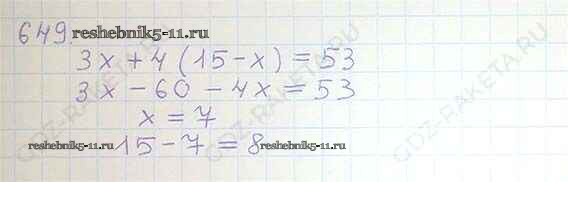 649. reshebnik5-11.ru
3x + 4 (15 - x) = 53
3x - 60 - 4x = 53
x = 7
reshebnik5-11.ru 15 - 7 = 8 reshebnik5-11.ru
GDZ-RAKETA.RU
GDZ-RAKETA.RU